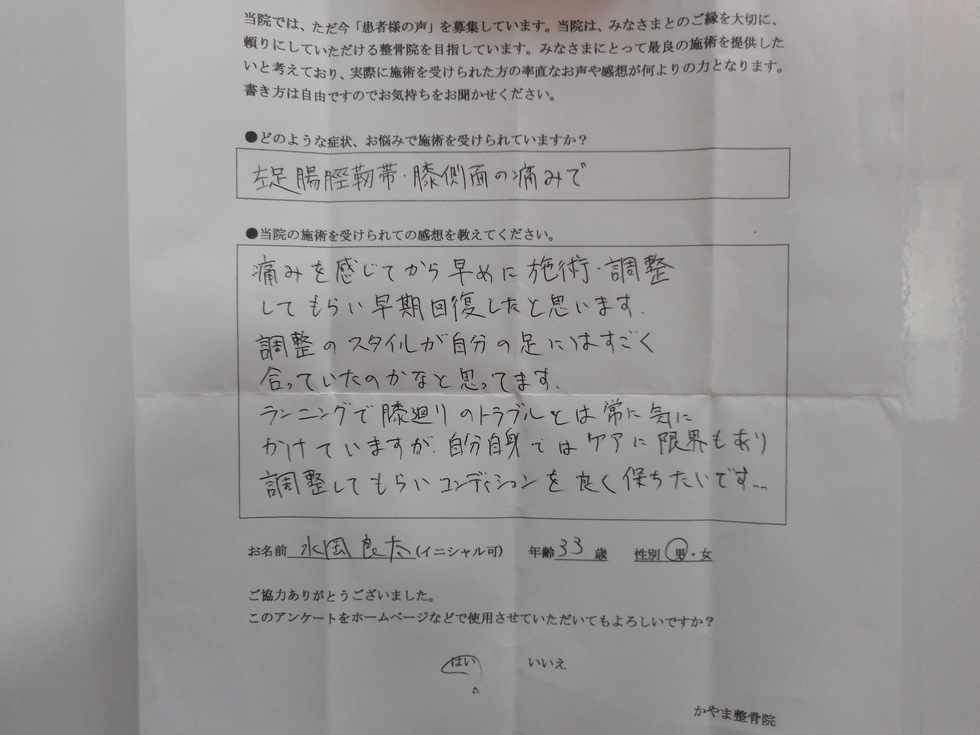 当院では、ただ今「患者様の声」を募集しています。当院は、みなさまとのご縁を大切に、
頼りにしていただける整骨院を目指しています。みなさまにとって最良の施術を提供した
いと考えており、実際に施術を受けられた方の率直なお声や感想が何よりの力となります。
書き方は自由ですのでお気持ちをお聞かせください。
●どのような症状、お悩みで施術を受けられていますか？
左足腸脛靭帯・膝側面の痛みで
●当院の施術を受けられての感想を教えてください。
痛みを感じてから早めに施術・調整
してもらい早期回復したと思います.
調整のスタイルが自分の足にはすごく
合っていたのかなと思ってます.
ランニングで膝廻りのトラブルとは常に気に
かけていますが.自分自身ではケアに限界もあり
調整してもらいコンディションを良く保ちたいです...
お名前 水岡良太 (イニシャル可) 年齢 33 歳 性別 男・女
ご協力ありがとうございました。
このアンケートをホームページなどで使用させていただいてもよろしいですか？
はい いいえ
かやま整骨院